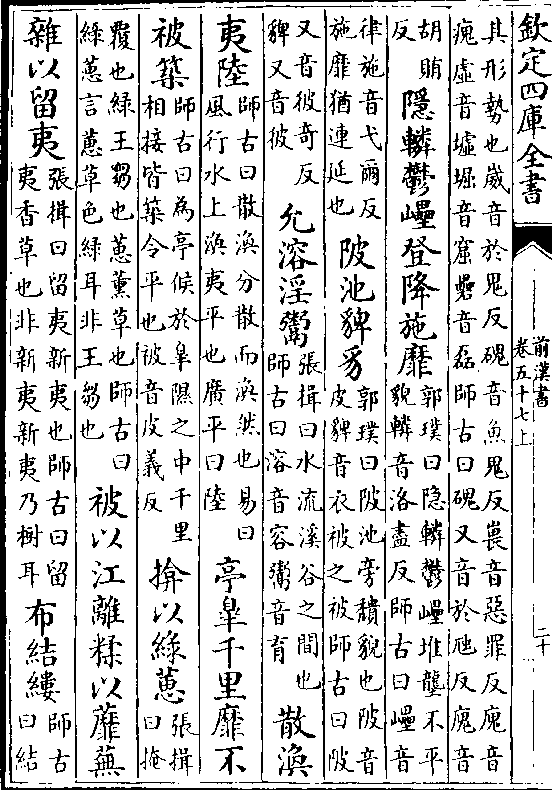 欽定四庫全書
前漢書
卷五十七上
二十
其形勢也崴音於鬼反磈音魚鬼反㠢音惡罪反廆音
瘣虛音墟堀音窟礨音磊師古曰磈又音於虺反廆音
胡賄
反
隱轔鬱𡾊登降施靡
郭璞曰隐轔鬱𡾊堆壟不平
貌轔音洛盡反師古曰𡾊音
律施音弋爾反
施靡猶連延也
陂池貏豸
郭璞曰陂池旁穨貌也陂音
皮貏音衣被之被師古曰陂
又音彼奇反
貏又音彼
允溶淫鬻
張揖曰水流溪谷之間也
師古曰溶音容鬻音育
散渙
夷陸
師古曰散渙分散而渙然也易曰
風行水上渙夷平也廣平曰陸
亭皐千里靡不
被築
師古曰為亭候於皐隰之中千里
相接皆築令平也被音皮義反
揜以緑蕙
張揖
曰掩
覆也緑王芻也蕙薰草也師古曰
緑蕙言蕙草色緑耳非王芻也
被以江離糅以蘼蕪
雜以留夷
張揖曰留夷新夷也師古曰留
夷香草也非新夷新夷乃樹耳
布結縷
師古
曰結